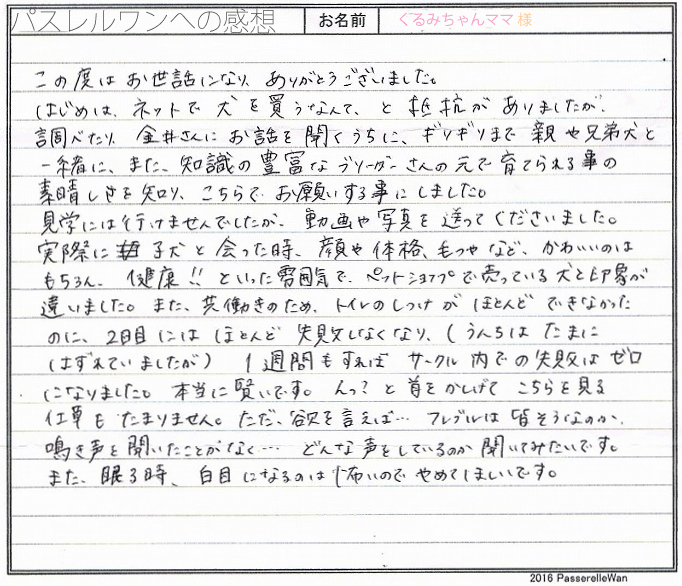 パスレルワンへの感想 お名前 くるみちゃんママ 様
この度はお世話になり、ありがとうございました。
はじめは、ネットで犬を買うなんて、と抵抗がありましたが、
調べたり、金井さんにお話を聞くうちに、ギリギリまで親や兄弟犬と
一緒に、また、知識の豊富なブリーダーさんの元で育てられる事の
素晴しさを知り、こちらでお願いする事にしました。
見学には行けませんでしたが、動画や写真を送ってくださいました。
実際に子犬と会った時、顔や体格、毛つやなど、かわいいのは
もちろん、健康!!といった雰囲気で、ペットショップで売っている犬と印象が
違いました。また、共働きのため、トイレのしつけがほとんどできなかった
のに、2日目にはほとんど失敗しなくなり、(うんちはたまに
はずれていましたが) 1週間もすればサークル内での失敗はゼロ
になりました。本当に賢いです。んっ?と首をかしげてこちらを見る
仕草もたまりません。ただ、欲を言えば…フレブルは皆そうなのか、
鳴き声を聞いたことがなく…どんな声をしているのか聞いてみたいです。
また、眠る時、白目になるのは怖いのでやめてほしいです。
2016 PasserelleWan